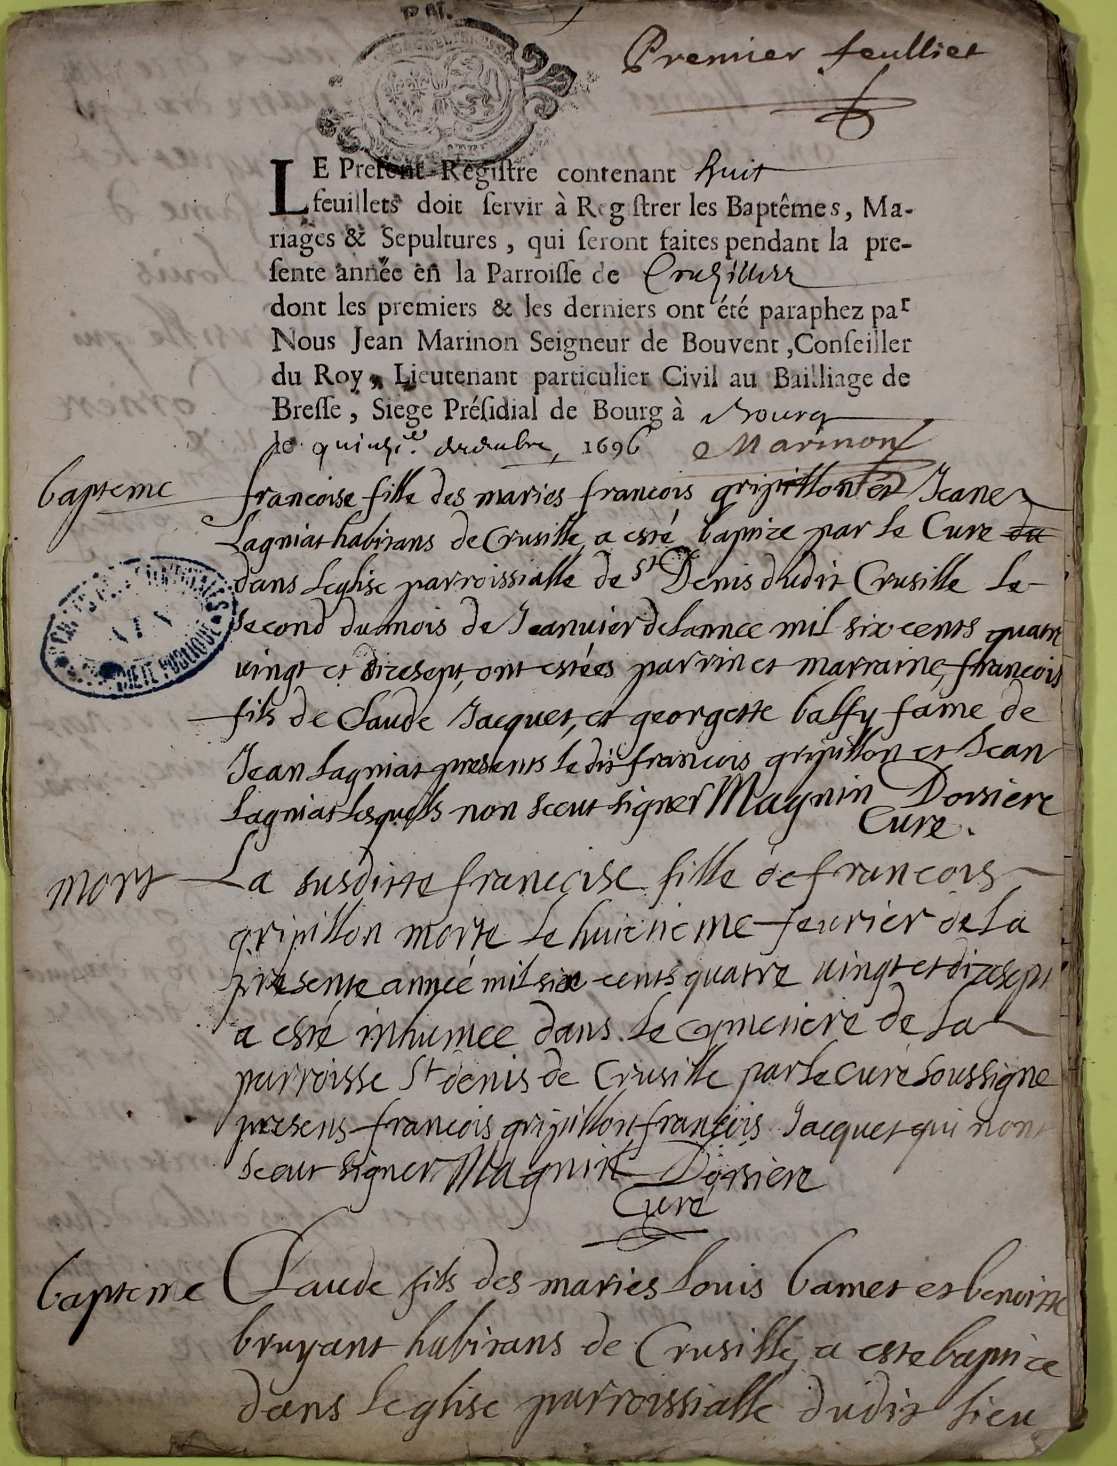 Premier feulliet
LE Present Registre contenant huit
feuillets doit servir à Registrer les Baptêmes, Ma-
riages & Sepultures, qui seront faites pendant la pre-
sente année en la Parroisse de Cruzillier
dont les premiers & les derniers ont été paraphez par
Nous Jean Marinon Seigneur de Bouvent, Conseiller
du Roy, Lieutenant particulier Civil au Bailliage de
Bresse, Siege Présidial de Bourg à Bourg
le quinze decembre, 1696 Marinon
bapteme francoise fille des maries francois gripillon et Jeane
Lagniat habitans de Crusille, a esté baptize par le Cure du
dans Leglise parroissialle de St Denis dudit Crusille le
second du mois de Jeanvier de lannee mil six cents quatre
vingt et dizesept, ont estées parrin et marraine, francois
fils de Claude Jacquet, et georgette balfy fame de
Jean Lagniat presents ledit francois gripillon et Jean
Lagniat lesquels non sceut signer Magnin Dorsiere
Cure.
mort La susditte francoise fille de francois
gripillon morte le huictieme feurier de la
presente année mil six cents quatre vingt et dizesept
a esté inhumee dans le cymetiere de la
parroisse St denis de Crusille par le curé soussigne
presens francois gripillon francois Jacquet qui nont
sceut signer Magnin Dorsiere
Curé
bapteme Claude fils des maries Louis bamet et benoitte
bruyant habitans de Crusille, a este baptize
dans Leglise parroissialle dudit lieu